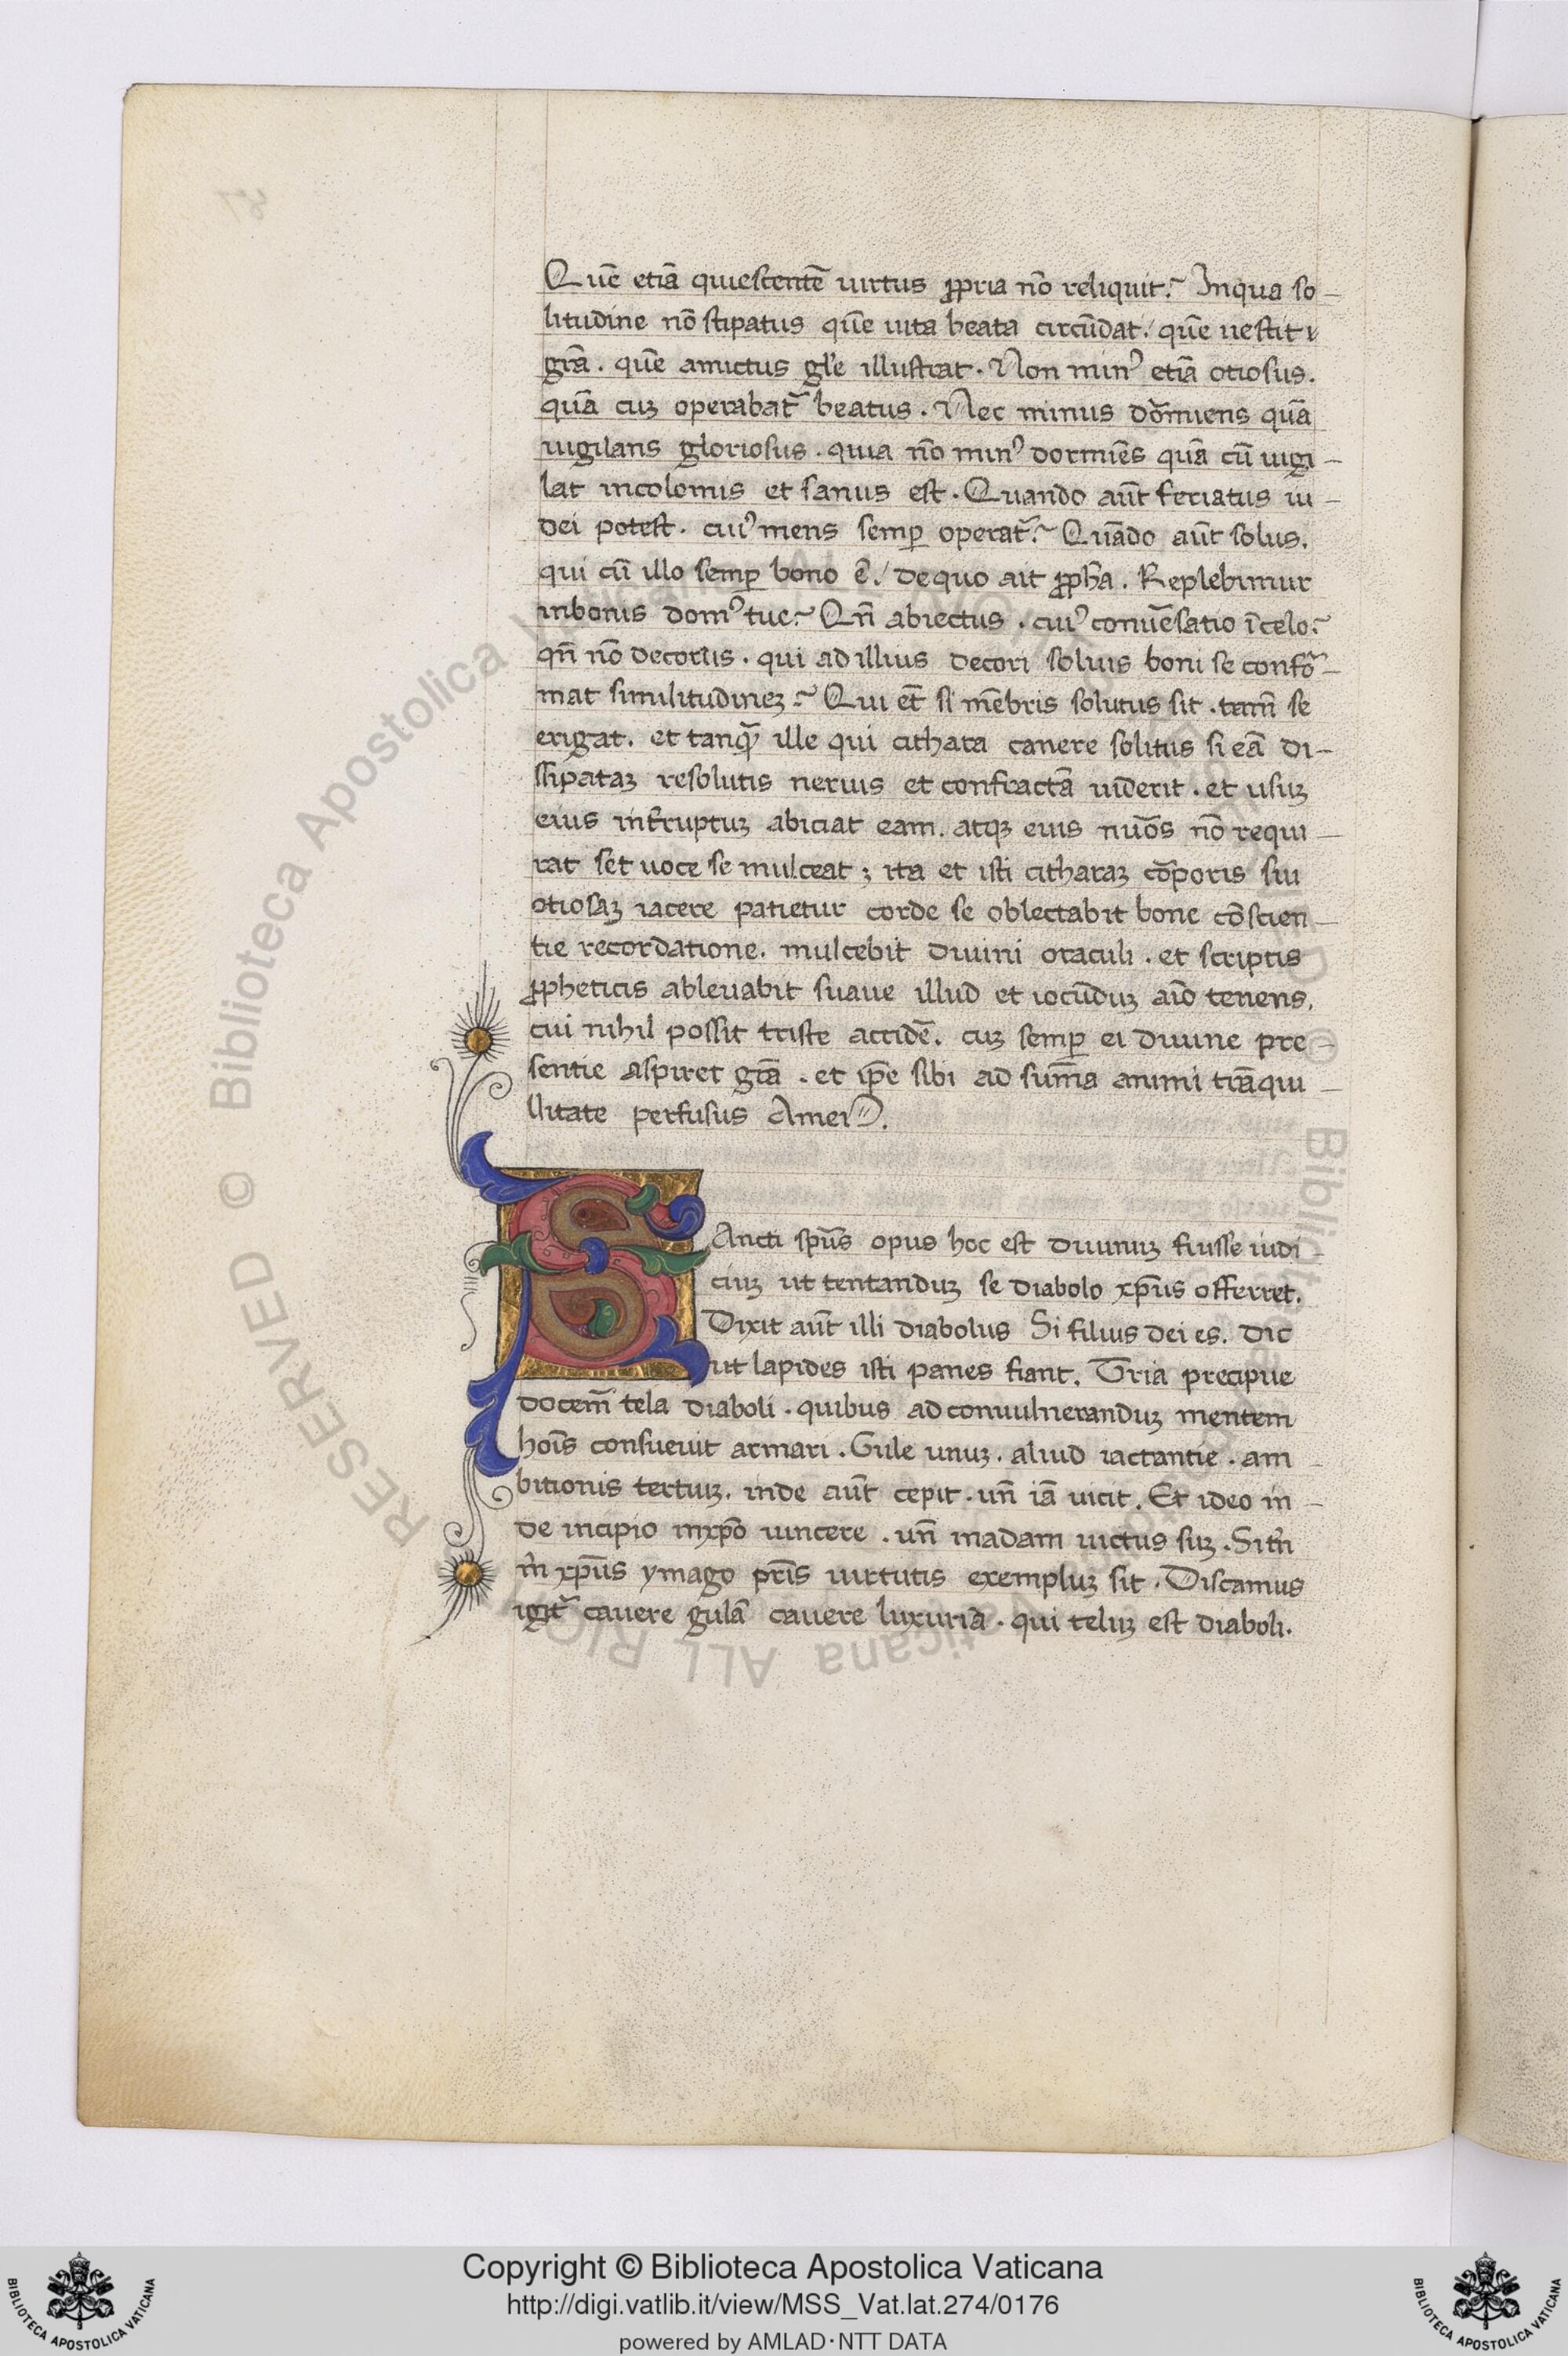 Quē etiā quiescentē uirtus ꝓpria nō reliquit? Inqua so-
litudine nō stipatus quē uita beata circūdat / quē uestit
grā . quē amictus gl'e illustrat . Non minꝰ etiā otiosus .
quā cuꝫ operabat᷑ beatus . Nec minus dōrmiens quā
uigilans gloriosus . quia nō minꝰ dormiēs quā cū uigi-
lat incolomis et sanus est . Quando aūt feriatus ui-
deri potest . cuiꝰ mens semꝑ operat᷑? Quādo aūt solus .
qui cū illo semꝑ bono ē / dequo ait ꝓpħa . Replebimur
inbonis domꝰ tue? Qn̄ abiectus . cuiꝰ conuēsatio ī celo?
qn̄ nō decorus . qui ad illius decori soluis boni se confō-
mat similitudineꝫ? Qui et̄ si mēbris solutus sit . tam̄ se
erigat . et tanqȝ ille qui cithara canere solitus si eā di-
ssipataꝫ resolutis neruis et confractā uiderit . et usuꝫ
eius infruptuꝫ abiciat eam . atqꝫ eius nūos nō requi-
rat set uoce se mulceat ; ita et isti citharaꝫ cōrporis siu
otiosaꝫ iacere patietur corde se oblectabit bone cōscien-
tie recordatione . mulcebit diuini oraculi . et scriptis
ꝓpheticis ableuabit suaue illud et iocūduꝫ aīo tenens .
cui nihil possit triste accidē . cuꝫ semꝑ ei diuine pre-
sentie aspiret grā . et ip̄e sibi ad sum̄a animi trāqui-
llitate perfusus Amen .
SAncti sp̄us opus hoc est diuinuꝫ fuisse iudi-
ciuꝫ ut tentanduꝫ se diabolo xp̄us offerret .
Dixit aūt illi diabolus Si filius dei es . dic
ut lapides isti panes fiant . Tria precipue
docem̄ tela diaboli . quibus ad conuulneranduꝫ mentem
hoīs consueuit armari . Gule unuꝫ . aliud iactantie . am-
bitionis tertiuꝫ . inde aūt cepit . un̄ iā uicit . Et ideo in-
de incipio inxp̄o uincere . un̄ inadam uictus suꝫ . Si tn̄
m̄ xp̄us ymago pr̄is uirtutis exempluꝫ sit . Discamus
igit᷑ cauere gulā cauere luxuriā . qui teluꝫ est diaboli .
Copyright © Biblioteca Apostolica Vaticana
http://digi.vatlib.it/view/MSS_Vat.lat.274/0176
powered by AMLAD·NTT DATA